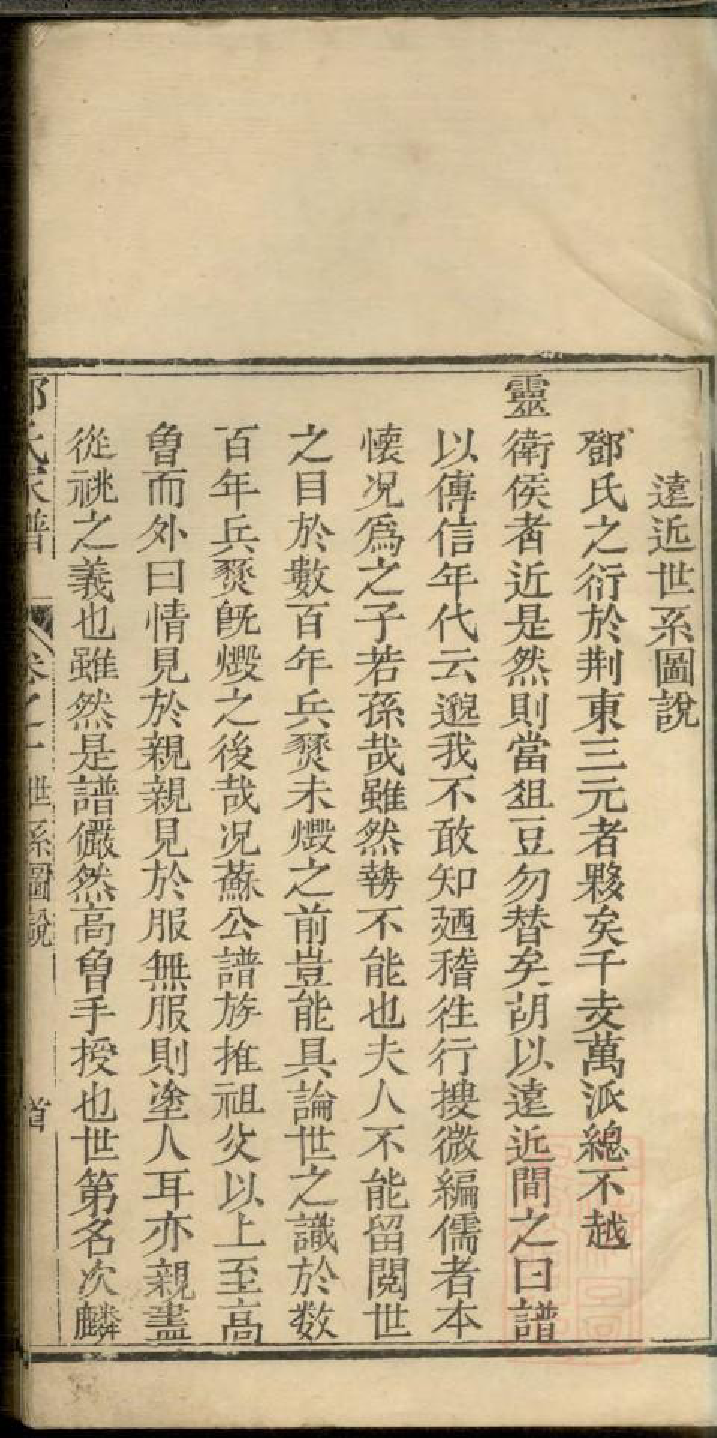 遠近世系圖說
鄧氏之衍於荆東三元者夥矣千支萬派總不越
靈衛侯者近是然則當俎豆勿替矣胡以遠近間之曰譜
以傳信年代云邈我不敢知廼稽徃行搜微編儒者本
懷况爲之子若孫哉雖然勢不能也夫人不能留閱世
之目於數百年兵燹未燬之前豈能具論世之識於数
百年兵燹旣燬之後哉况蘇公譜族推祖父以上至高
曾而外曰情見於親親見於服無服則塗人耳亦親盡
從祧之義也雖然是譜儼然高曾手授也世第名次麟
鄧氏家譜 卷之一 世系圖說 首